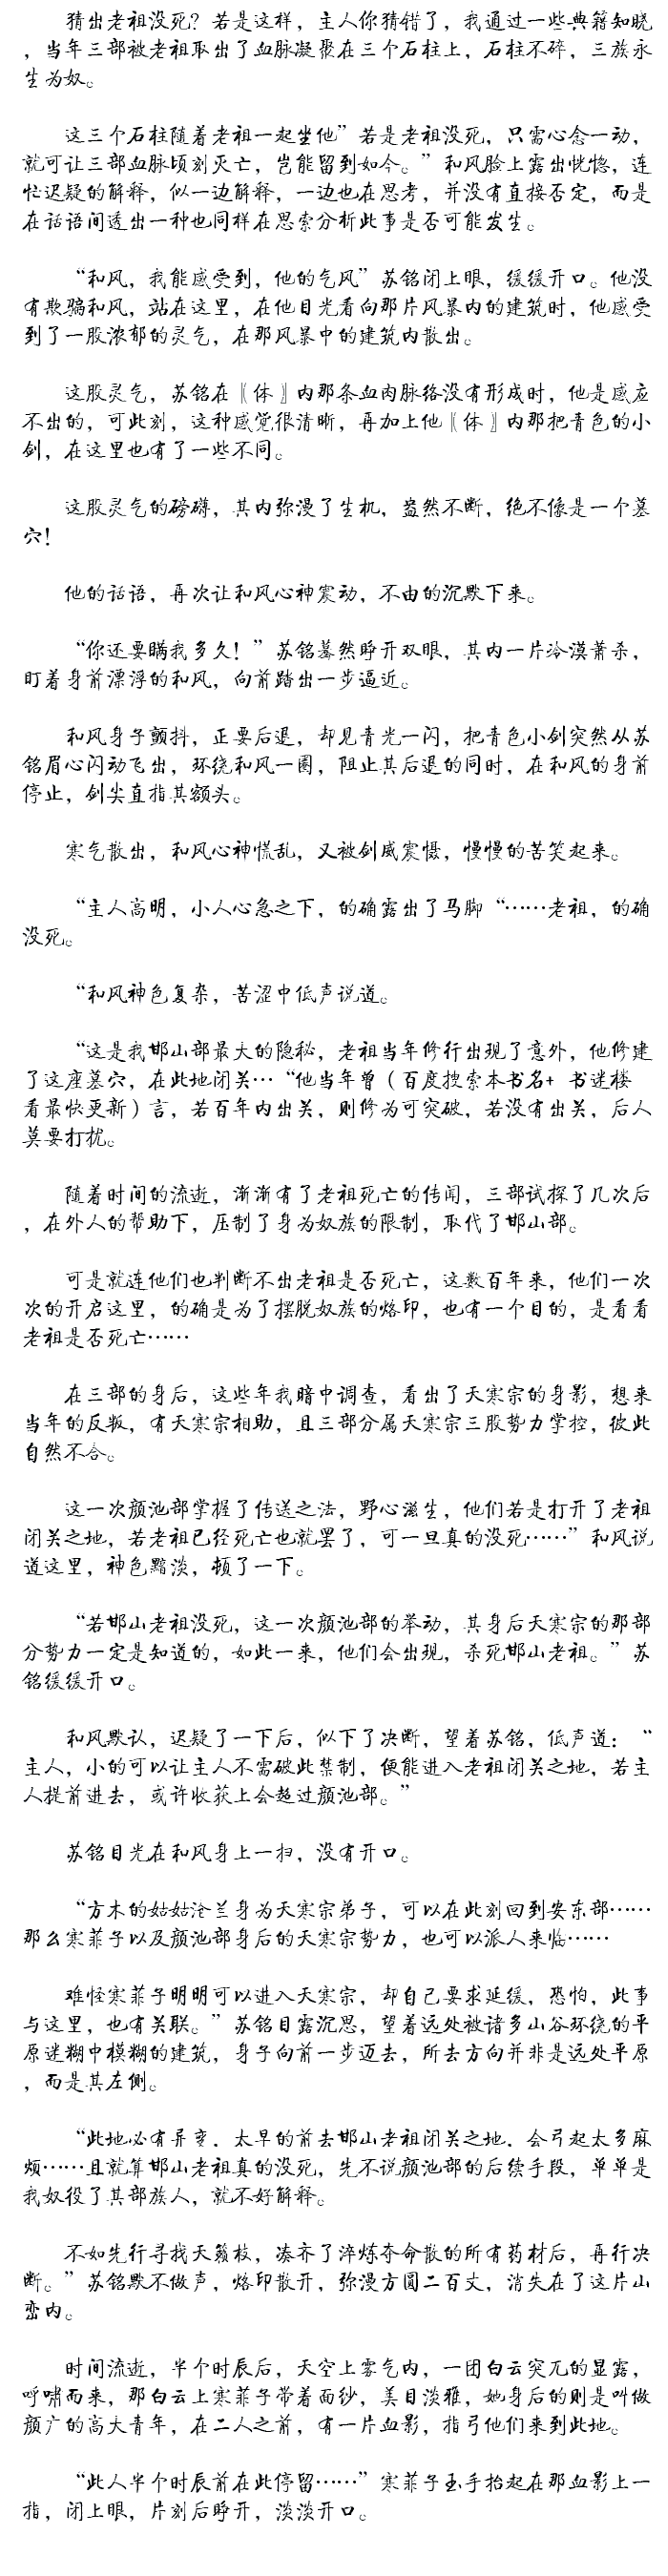 猜出老祖没死？若是这样，主人你猜错了，我通过一些典籍知晓
，当年三部被老祖取出了血脉凝聚在三个石柱上，石柱不碎，三族永
生为奴。
这三个石柱随着老祖一起坐他”若是老祖没死，只需心念一动，
就可让三部血脉顷刻灭亡，岂能留到如今。”和风脸上露出恍惚，连
忙迟疑的解释，似一边解释，一边也在思考，并没有直接否定，而是
在话语间透出一种也同样在思索分析此事是否可能发生。
“和风，我能感受到，他的气风”苏铭闭上眼，缓缓开口。他没
有欺骗和风，站在这里，在他目光看向那片风暴内的建筑时，他感受
到了一股浓郁的灵气，在那风暴中的建筑内散出。
这股灵气，苏铭在〖体〗内那条血肉脉络没有形成时，他是感应
不出的，可此刻，这种感觉很清晰，再加上他〖体〗内那把青色的小
剑，在这里也有了一些不同。
这股灵气的磅礴，其内弥漫了生机，盎然不断，绝不像是一个墓
穴！
他的话语，再次让和风心神震动，不由的沉默下来。
“你还要瞒我多久！”苏铭蓦然睁开双眼，其内一片冷漠萧杀，
盯着身前漂浮的和风，向前踏出一步逼近。
和风身子颤抖，正要后退，却见青光一闪，把青色小剑突然从苏
铭眉心闪动飞出，环绕和风一圈，阻止其后退的同时，在和风的身前
停止，剑尖直指其额头。
寒气散出，和风心神慌乱，又被剑威震慑，慢慢的苦笑起来。
“主人高明，小人心急之下，的确露出了马脚“……老祖，的确
没死。
“和风神色复杂，苦涩中低声说道。
“这是我邯山部最大的隐秘，老祖当年修行出现了意外，他修建
了这座墓穴，在此地闭关…“他当年曾（百度搜索本书名+ 书迷楼
看最快更新）言，若百年内出关，则修为可突破，若没有出关，后人
莫要打扰。
随着时间的流逝，渐渐有了老祖死亡的传闻，三部试探了几次后
，在外人的帮助下，压制了身为奴族的限制，取代了邯山部。
可是就连他们也判断不出老祖是否死亡，这数百年来，他们一次
次的开启这里，的确是为了摆脱奴族的烙印，也有一个目的，是看看
老祖是否死亡……
在三部的身后，这些年我暗中调查，看出了天寒宗的身影，想来
当年的反叛，有天寒宗相助，且三部分属天寒宗三股势力掌控，彼此
自然不合。
这一次颜池部掌握了传送之法，野心滋生，他们若是打开了老祖
闭关之地，若老祖已经死亡也就罢了，可一旦真的没死……”和风说
道这里，神色黯淡，顿了一下。
“若邯山老祖没死，这一次颜池部的举动，其身后天寒宗的那部
分势力一定是知道的，如此一来，他们会出现，杀死邯山老祖。”苏
铭缓缓开口。
和风默认，迟疑了一下后，似下了决断，望着苏铭，低声道：“
主人，小的可以让主人不需破此禁制，便能进入老祖闭关之地，若主
人提前进去，或许收获上会超过颜池部。”
苏铭目光在和风身上一扫，没有开口。
“方木的姑姑沧兰身为天寒宗弟子，可以在此刻回到安东部……
那么寒菲子以及颜池部身后的天寒宗势力，也可以派人来临……
难怪寒菲子明明可以进入天寒宗，却自己要求延缓，恐怕，此事
与这里，也有关联。”苏铭目露沉思，望着远处被诸多山谷环绕的平
原迷糊中模糊的建筑，身子向前一步迈去，所去方向并非是远处平原
，而是其左侧。
“此地必有异变．太早的前去邯山老祖闭关之地．会弓起太多麻
烦……且就算邯山老祖真的没死，先不说颜池部的后续手段，单单是
我奴役了其部族人，就不好解释。
不如先行寻找天籁枝，凑齐了淬炼夺命散的所有药材后，再行决
断。”苏铭默不做声，烙印散开，弥漫方圆二百丈，消失在了这片山
峦内。
时间流逝，半个时辰后，天空上雾气内，一团白云突兀的显露，
呼啸而来，那白云上寒菲子带着面纱，美目淡雅，她身后的则是叫做
颜广的高大青年，在二人之前，有一片血影，指弓他们来到此地。
“此人半个时辰前在此停留……”寒菲子玉手抬起在那血影上一
指，闭上眼，片刻后睁开，淡淡开口。